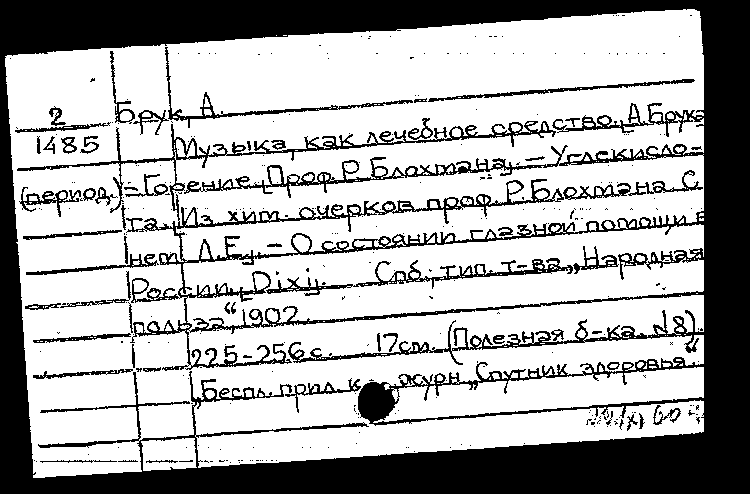 2 Брук, А.
1485 Музыка, как лечебное средство. [А. Брука
(период.) = Горение. [Проф. Р. Блохмана]. – Углекисло=
та. [Из хим. очерков проф. Р. Блохмана. С
нем. А.Е.]. – О состоянии глазной помощи в
России. [Dixi]. Спб., тип. т-ва „Народная
польза“, 1902.
225-256 с. 17 см. (Полезная б-ка. №8).
„Беспл. прил. к журн. „Спутник здоровья“.